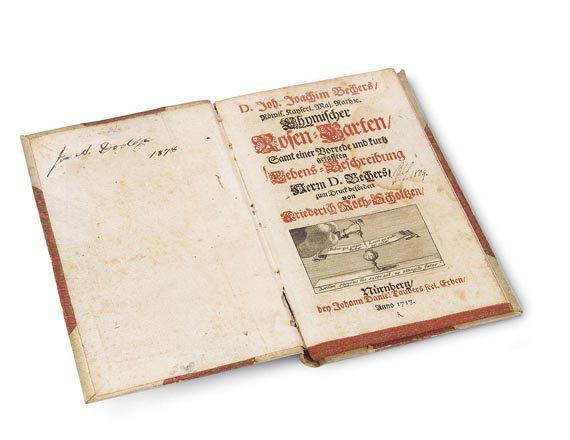 1878
D. Joh. Joachim Bechers/
Römis. Kayserl. Maj. Rath ꝛc.
Chymischer
Rosen-Garten/
Samt einer Vorrede und kurtz
gefaßten
Lebens-Beschreibung
Herrn D. Bechers/
zum Druck befördert
von
Friederich Roth-Scholtzen/
Nürnberg/
bey Johann Daniel Taubers seel. Erben/
Anno 1717.